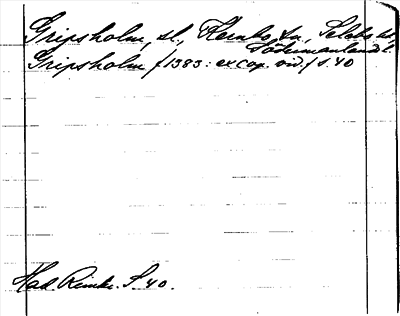 Gripsholm, sl., Kernbo sn, Selebo hd,
Södermanland l.
Gripsholm /1383: ex cop. vid./ s. 40
Had. Rimkr. S 40.